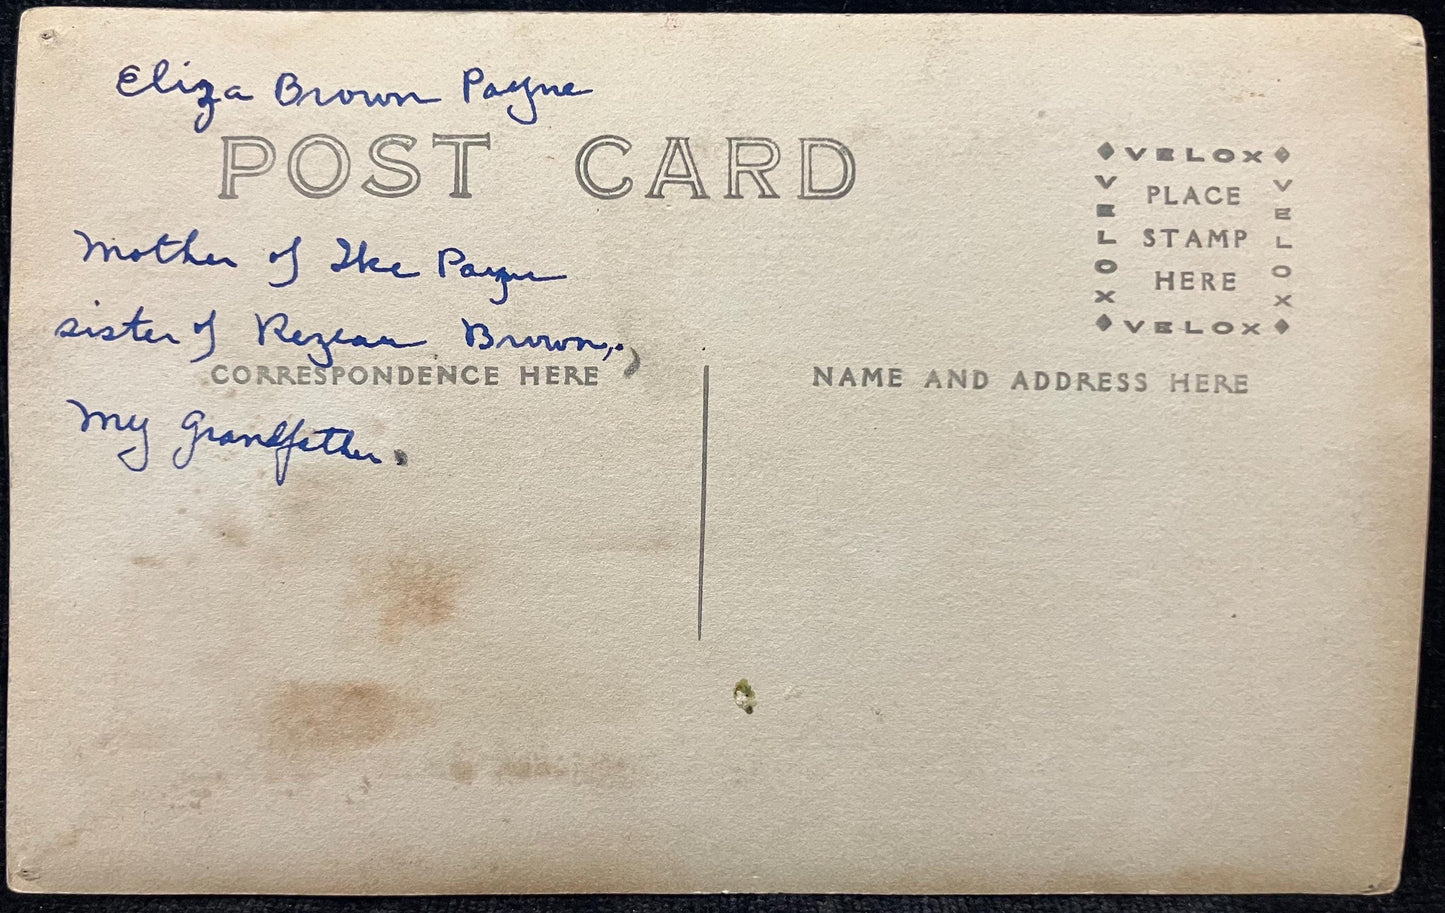 Eliza Brown Payne
POST CARD
Mother of Ike Payne
sister of Rezeau Brown,
CORRESPONDENCE HERE
My grandfather.
◆VELOX◆
VELOX
PLACE
STAMP
HERE
VELOX
◆VELOX◆
NAME AND ADDRESS HERE